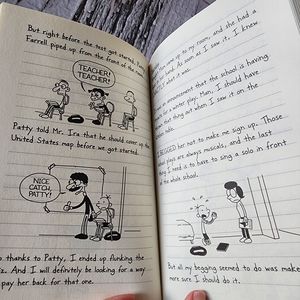 But right before the test got started, Patty
Farrell piped up from the front of the room.
TEACHER!
TEACHER!
Patty told Mr. Ira that he should cover up the
United States map before we got started.
NICE
CATCH,
PATTY!
So thanks to Patty, I ended up flunking the
quiz. And I will definitely be looking for a way
to pay her back for that one.
came up to my room, and she had a
hand. As soon as I saw it, I knew
exactly what it was.
an announcement that the school is having
for a winter play. Man, I should have
that thing out when I saw it on the
table.
I BEGGED her not to make me sign up. Those
plays are always musicals, and the last
thing I need is to have to sing a solo in front
of the whole school.
But all my begging seemed to do was make
more sure I should do it.